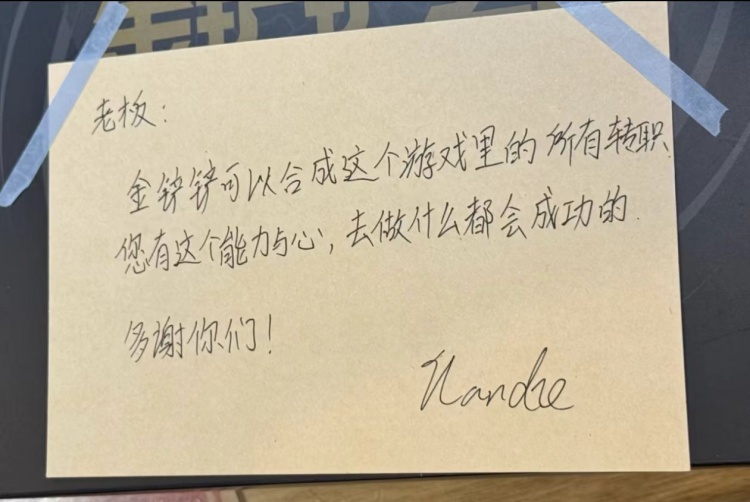 老板:
金铲铲可以合成这个游戏里的所有转职
您有这个能力与心,去做什么都会成功的.
多谢你们!